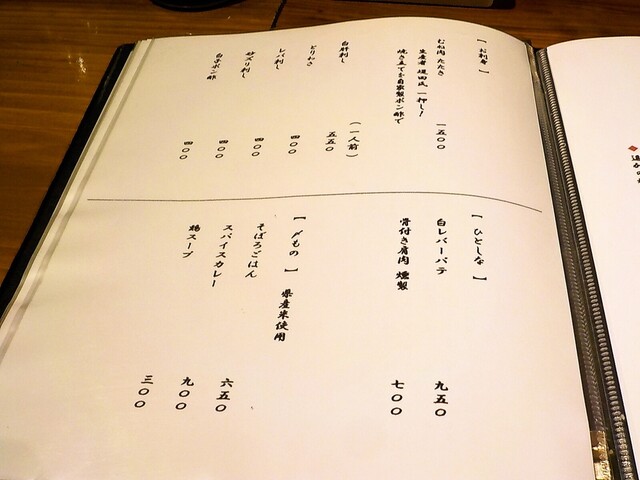 【お刺身】
むね肉 たたき 一五〇〇
生産者 堤田氏 一押し!
焼き立てを自家製ポン酢で
(一人前)
白肝刺し 五五〇
とりわさ 四〇〇
レバ刺し 四〇〇
砂ズリ刺し 四〇〇
白子ポン酢 四〇〇
【ひとしな】
白レバーパテ 九五〇
骨付き肩肉 燻製 七〇〇
【〆もの】 県産米使用
そぼろごはん 六五〇
スパイスカレー 九〇〇
鶏スープ 三〇〇